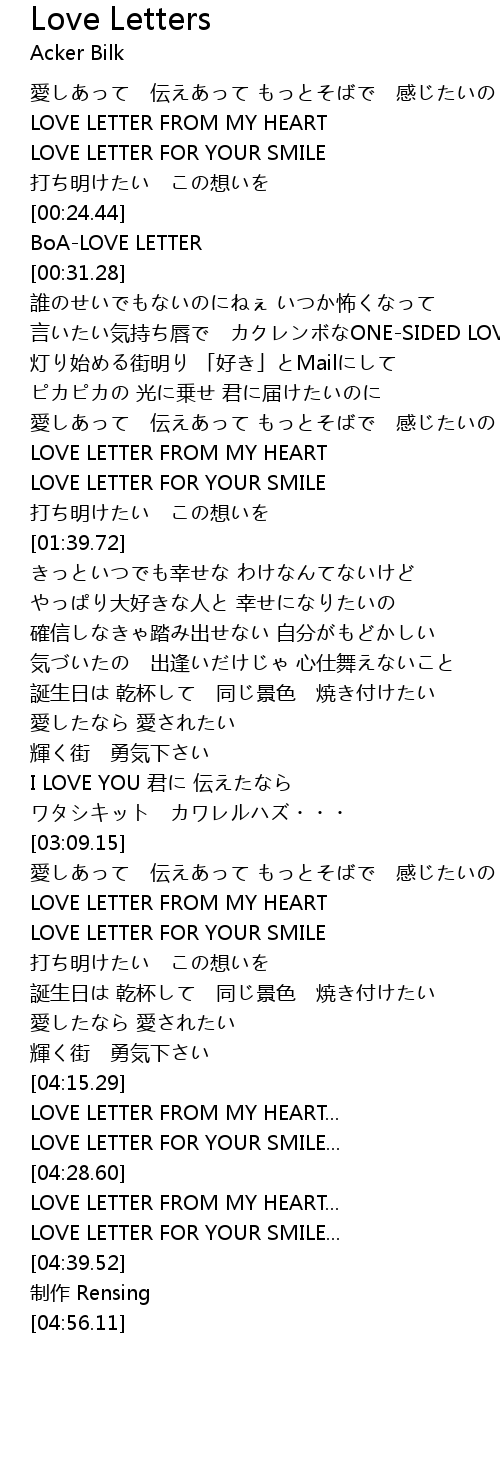 Love Letters
Acker Bilk
愛しあって　伝えあって もっとそばで　感じたいの
LOVE LETTER FROM MY HEART
LOVE LETTER FOR YOUR SMILE
打ち明けたい　この想いを
[00:24.44]
BoA-LOVE LETTER
[00:31.28]
誰のせいでもないのにねぇ いつか怖くなって
言いたい気持ち唇で　カクレンボなONE-SIDED LOV
灯り始める街明り 「好き」とMailにして
ピカピカの 光に乗せ 君に届けたいのに
愛しあって　伝えあって もっとそばで　感じたいの
LOVE LETTER FROM MY HEART
LOVE LETTER FOR YOUR SMILE
打ち明けたい　この想いを
[01:39.72]
きっといつでも幸せな わけなんてないけど
やっぱり大好きな人と 幸せになりたいの
確信しなきゃ踏み出せない 自分がもどかしい
気づいたの　出逢いだけじゃ 心仕舞えないこと
誕生日は 乾杯して　同じ景色　焼き付けたい
愛したなら 愛されたい
輝く街　勇気下さい
I LOVE YOU 君に 伝えたなら
ワタシキット　カワレルハズ・・・
[03:09.15]
愛しあって　伝えあって もっとそばで　感じたいの
LOVE LETTER FROM MY HEART
LOVE LETTER FOR YOUR SMILE
打ち明けたい　この想いを
誕生日は 乾杯して　同じ景色　焼き付けたい
愛したなら 愛されたい
輝く街　勇気下さい
[04:15.29]
LOVE LETTER FROM MY HEART...
LOVE LETTER FOR YOUR SMILE...
[04:28.60]
LOVE LETTER FROM MY HEART...
LOVE LETTER FOR YOUR SMILE...
[04:39.52]
制作 Rensing
[04:56.11]